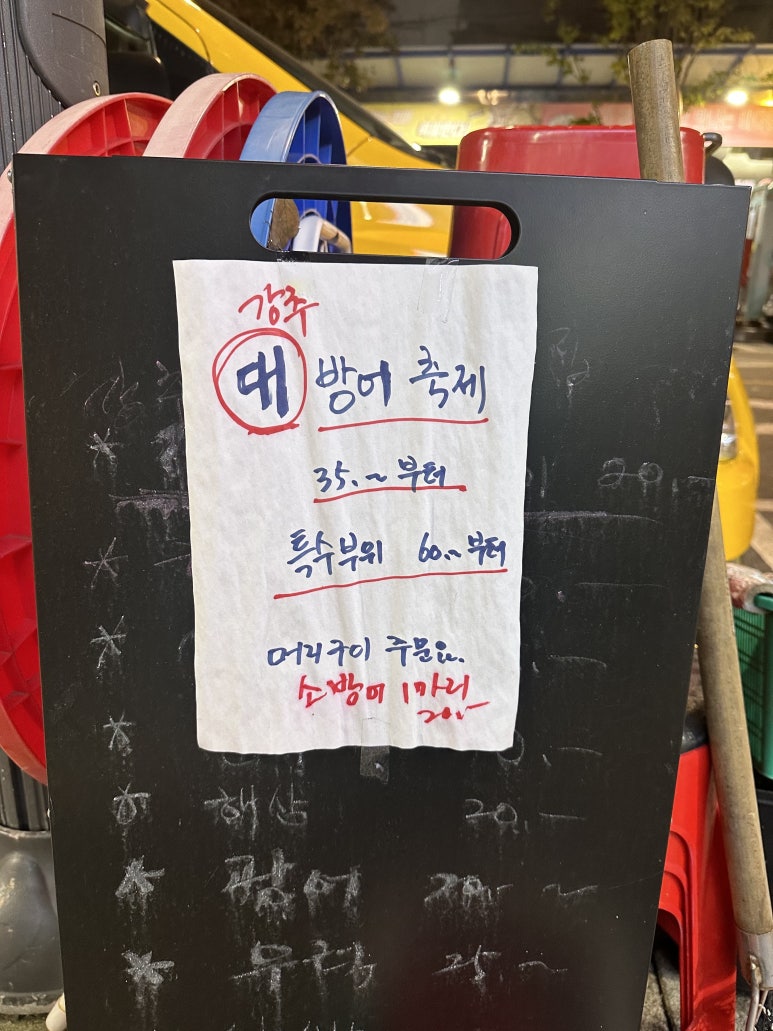 강추
대 방어 축제
35.~ 부터
특수부위 60.~ 부터
머리구이 주문요.
소방어 1마리
20.-
20.-
해삼 20.-
광어 20.- ~
우럭 25.~